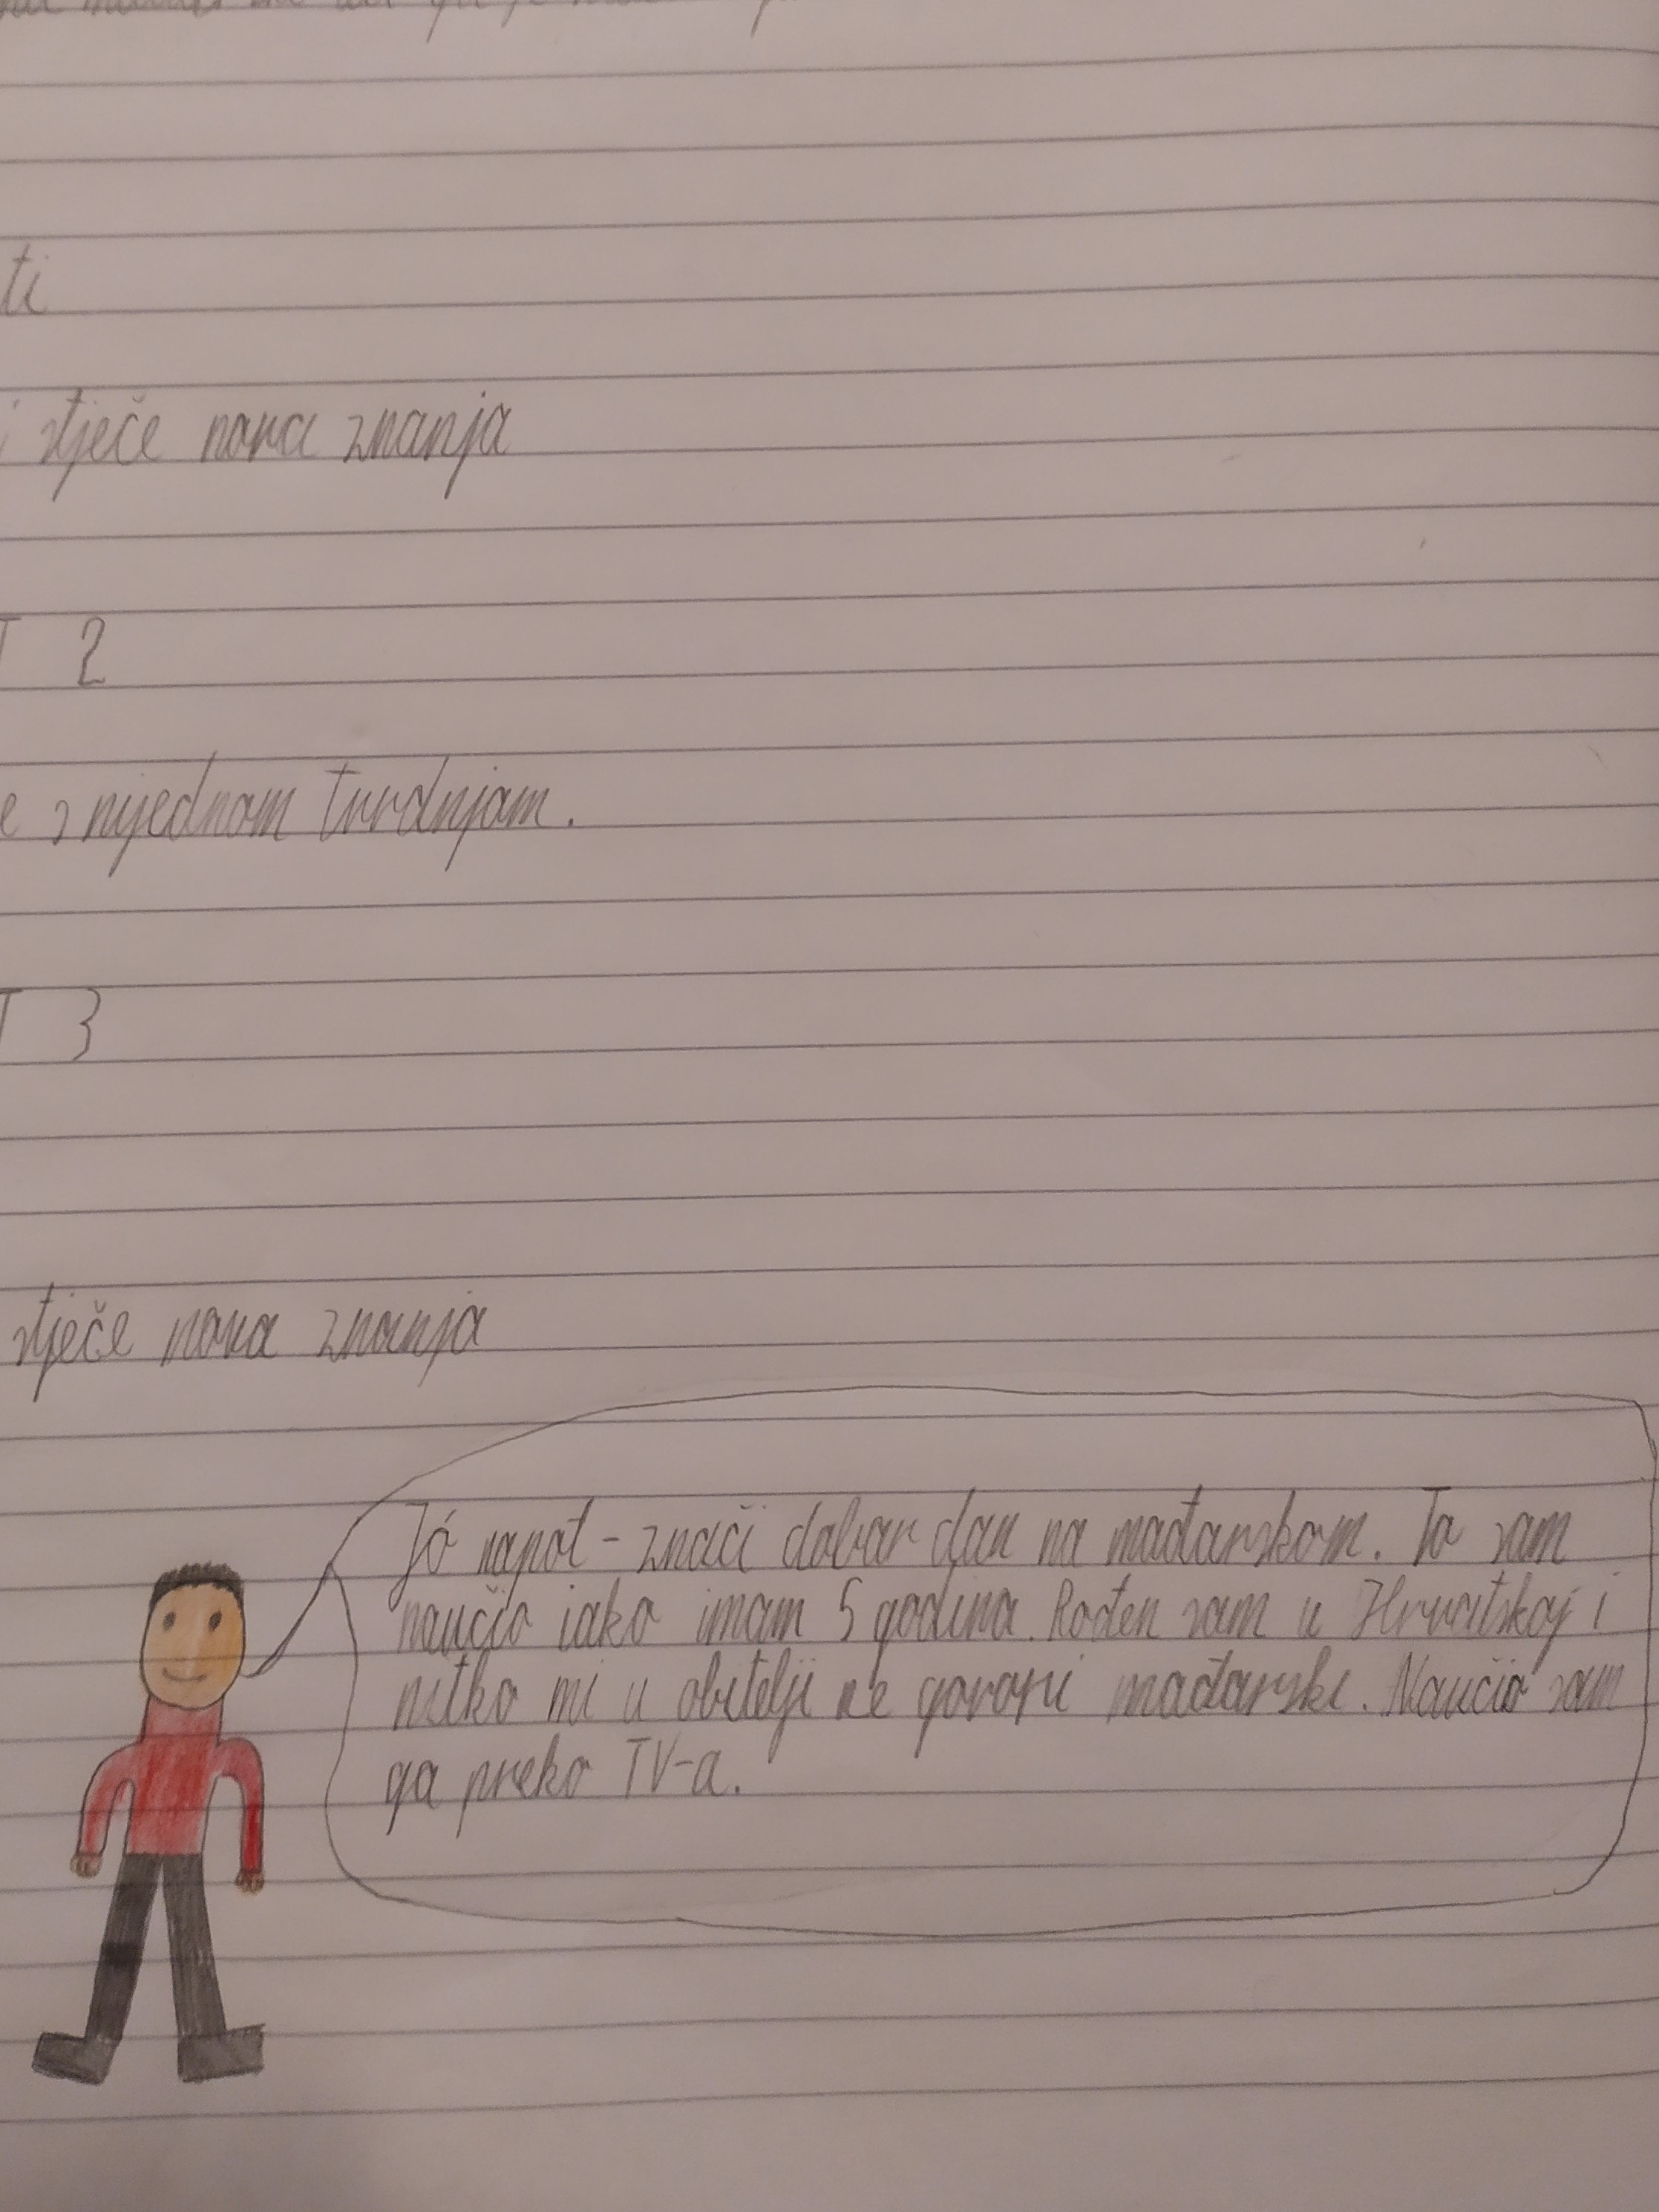 ti
stječe nova znanja
T 2
e s nijednom tvrdnjam.
T 3
stječe nova znanja
Jó napot - znači dobar dan na mađarskom. To sam
naučio iako imam 5 godina. Rođen sam u Hrvatskoj i
nitko mi u obitelji ne govori mađarski. Naučio sam
ga preko TV-a.